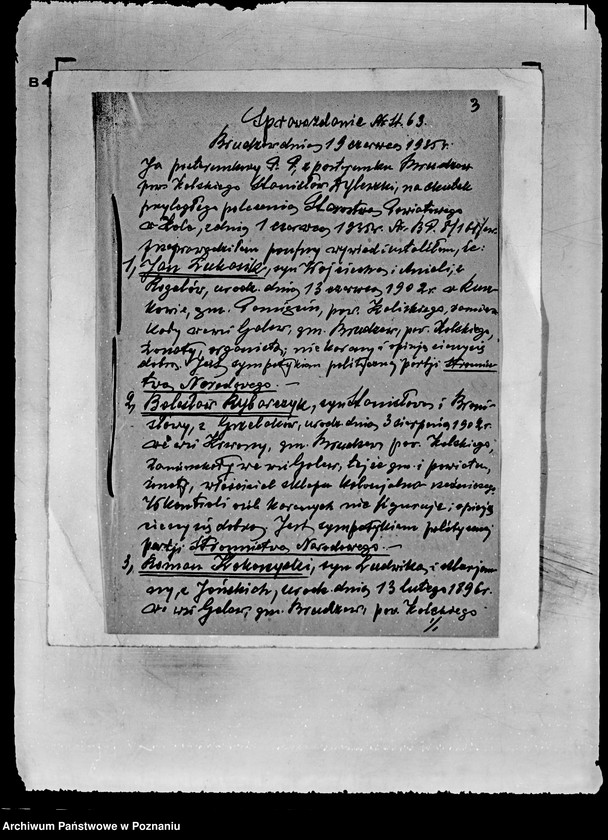 3
Sprawozdanie Nr. 63.
Brudzew dnia 19 czerwca 1935 r.
B
Ja posterunkowy P. P. z posterunku Brudzew
pow. Kolskiego Stanisław na skutek
przyległego polecenia Starostwa Powiatowego
w Kole, z dnia 1 czerwca 1935r. Nr. B.P.
przeprowadziłem poufny wywiad i ustaliłem, że:
1, Jan syn Wojciecha i
urodz. dnia 13 czerwca 1902 r. w
gm. pow. Kaliskiego, zamiesz-
kały we wsi Galew, gm. Brudzew, pow. Kolskiego,
żonaty, organista, nie karany i opinją cieszy się
dobrą. Jest sympatykiem politycznej partji Stronnic-
twa Narodowego. —
2, Bolesław Rybarczyk, syn Stanisława i Broni-
sławy, z Grzelaków, urodz. dnia 3 sierpnia 1902 r.
we wsi gm. Brudzew pow. Kolskiego,
zamieszkały we wsi Galew, tejże gm. i powiatu,
żonaty, właściciel sklepu kolonjalno
W kontroli osób karanych nie figuruje i opinją
cieszy się dobrą. Jest sympatykiem politycznej
partji Stronnictwa Narodowego. —
3, Roman syn Ludwika i Marjan-
ny, z urodz. dnia 13 lutego 1896 r.
we wsi Galew, gm. Brudzew, pow. Kolskiego
Archiwum Państwowe w Poznaniu